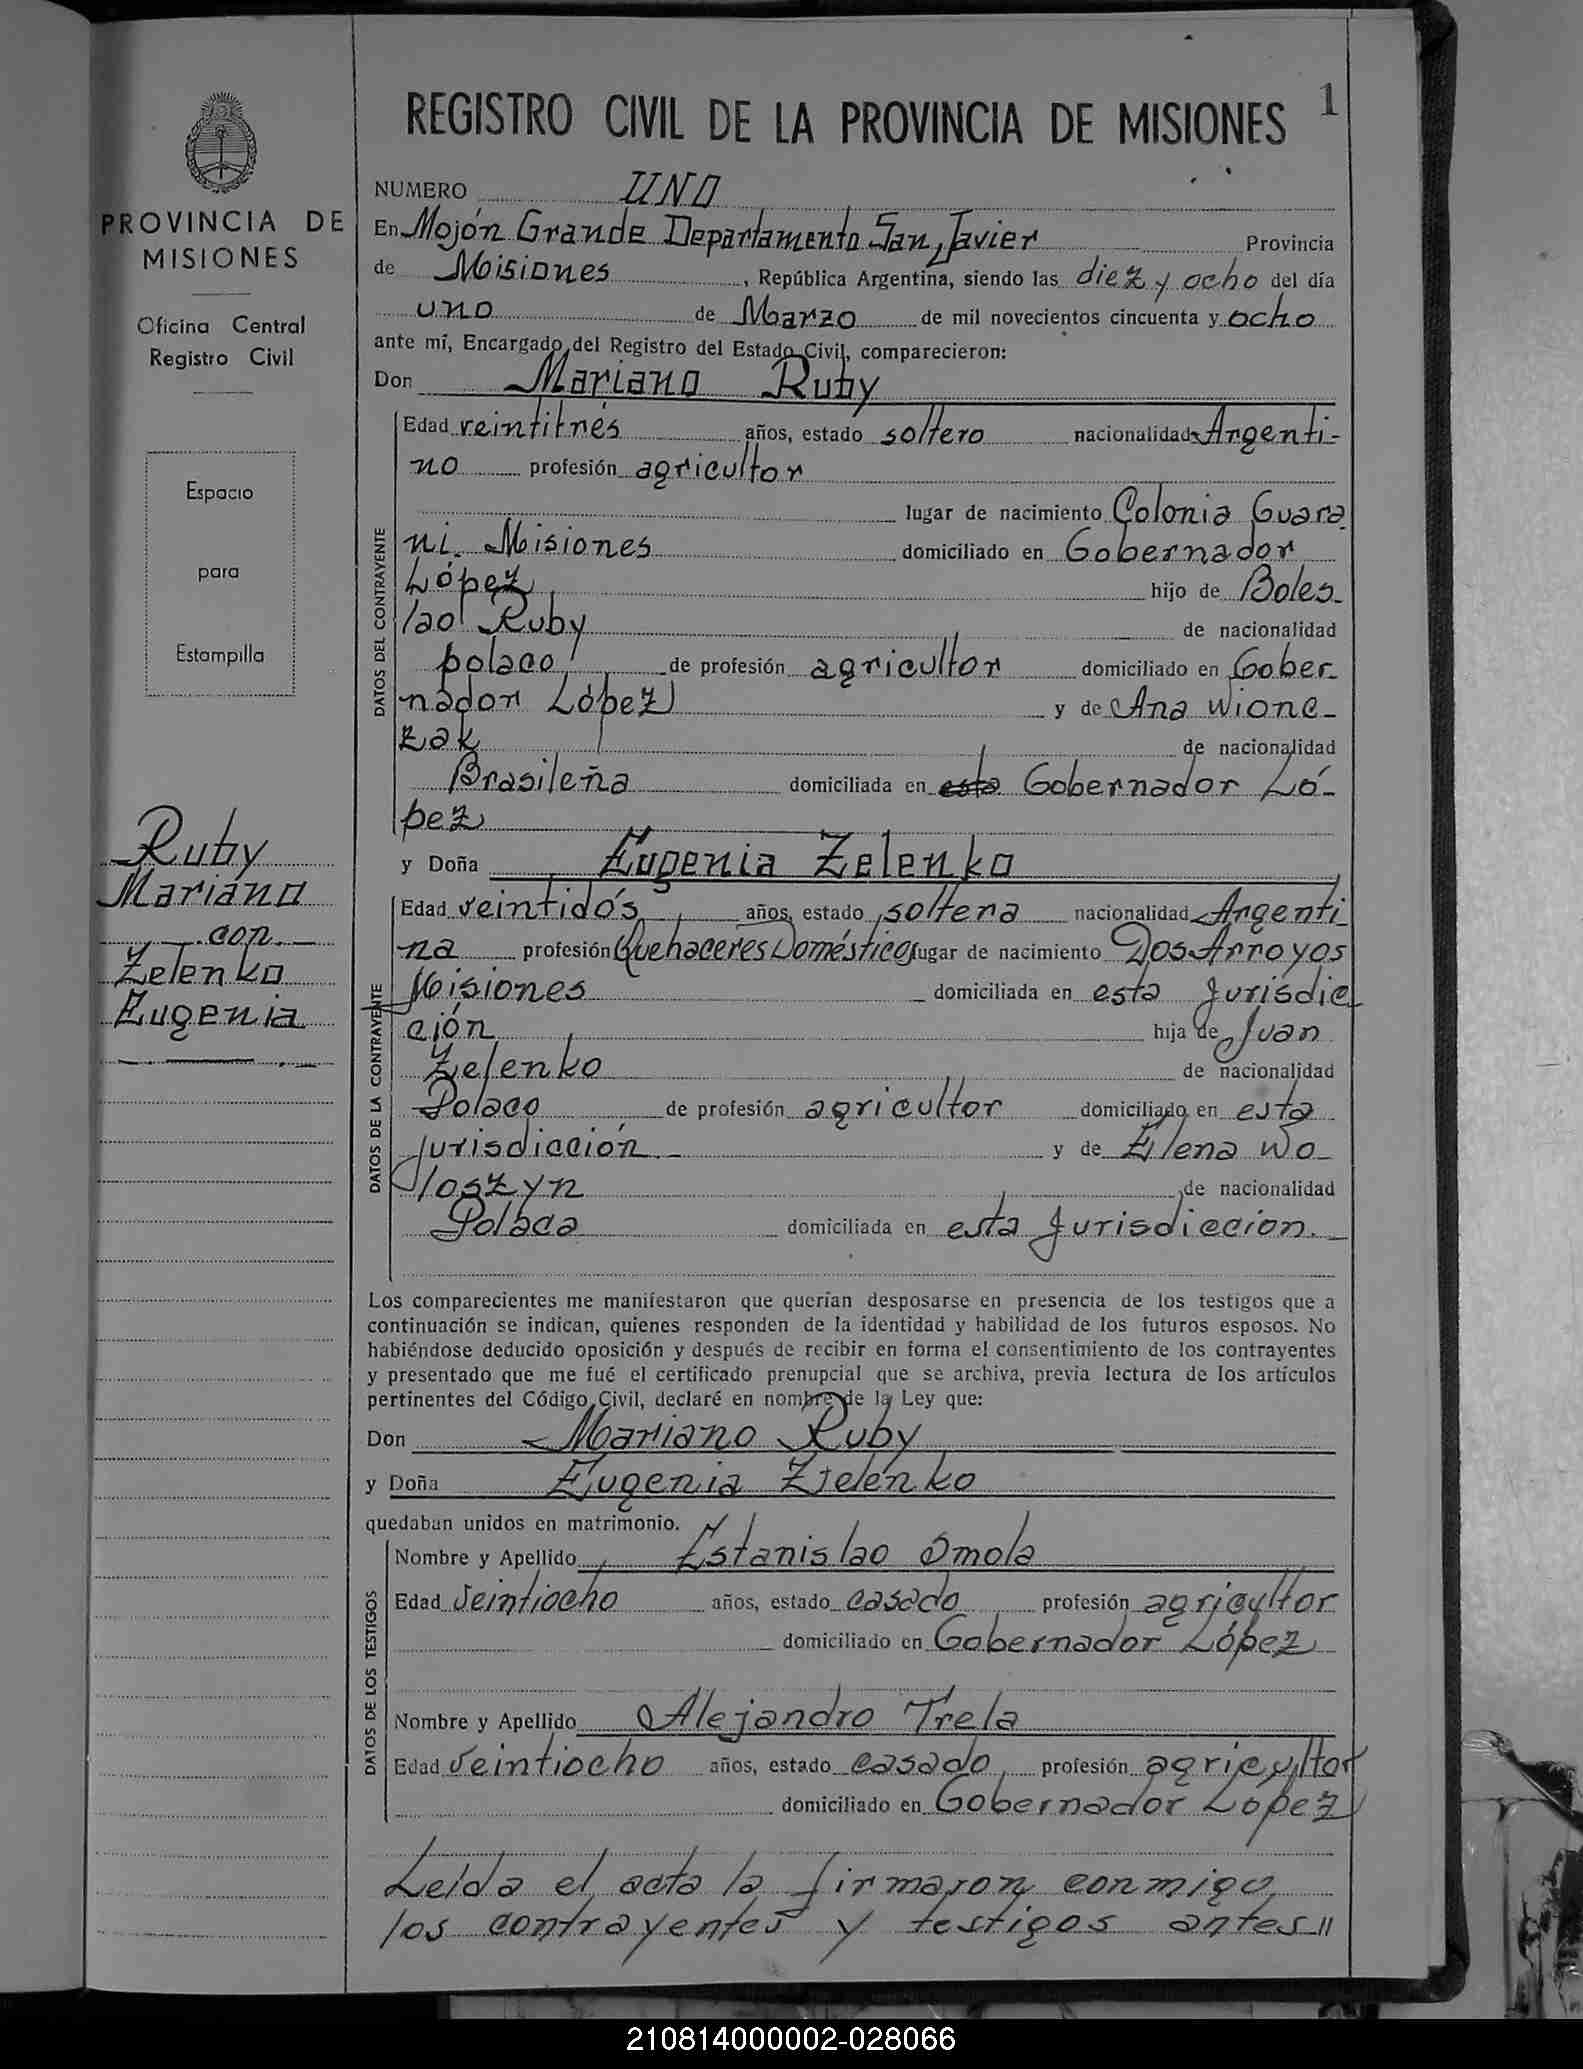 REGISTRO CIVIL DE LA PROVINCIA DE MISIONES 1
PROVINCIA DE
MISIONES
Oficina Central
Registro Civil
Espacio
para
Estampilla
Ruby
Mariano
con
Zelenko
Eugenia
NUMERO UNO
En Mojón Grande Departamento San Javier Provincia
de Misiones, República Argentina, siendo las diez y ocho del día
uno de Marzo de mil novecientos cincuenta y ocho
ante mí, Encargado del Registro del Estado Civil, comparecieron:
Don Mariano Ruby
DATOS DEL CONTRAYENTE
Edad veintitrés años, estado soltero nacionalidad Argenti-
no profesión agricultor
lugar de nacimiento Colonia Guara
ni. Misiones domiciliado en Gobernador
López hijo de Boles-
lao Ruby de nacionalidad
polaco de profesión agricultor domiciliado en Gober-
nador López y de Ana Wionc-
zak de nacionalidad
Brasileña domiciliada en esta Gobernador Ló-
pez
y Doña Eugenia Zelenko
DATOS DE LA CONTRAYENTE
Edad veintidós años, estado soltera nacionalidad Argenti-
na profesión Quehaceres Domésticos lugar de nacimiento Dos Arroyos
Misiones domiciliada en esta Jurisdic
ción hija de Juan
Zelenko de nacionalidad
Polaco de profesión agricultor domiciliado en esta
Jurisdicción.- y de Elena Wo-
loszyn de nacionalidad
Polaca domiciliada en esta Jurisdiccion.-
Los comparecientes me manifestaron que querían desposarse en presencia de los testigos que a
continuación se indican, quienes responden de la identidad y habilidad de los futuros esposos. No
habiéndose deducido oposición y después de recibir en forma el consentimiento de los contrayentes
y presentado que me fué el certificado prenupcial que se archiva, previa lectura de los artículos
pertinentes del Código Civil, declaré en nombre de la Ley que:
Don Mariano Ruby
y Doña Eugenia Zielenko
quedaban unidos en matrimonio.
DATOS DE LOS TESTIGOS
Nombre y Apellido Estanislao Smola
Edad Veintiocho años, estado casado profesión agricultor
domiciliado en Gobernador López
Nombre y Apellido Alejandro Trela
Edad Veintiocho años, estado casado profesión agricultor
domiciliado en Gobernador Lopez
Leída el acta la firmaron conmigo
los contrayentes y testigos antes//
210814000002-028066